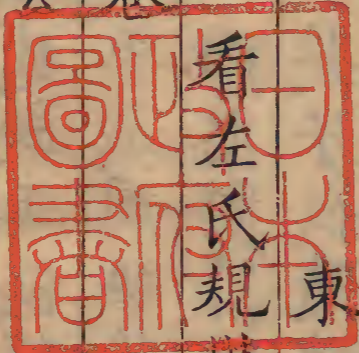 東
看左氏規
日本
政府
圖書